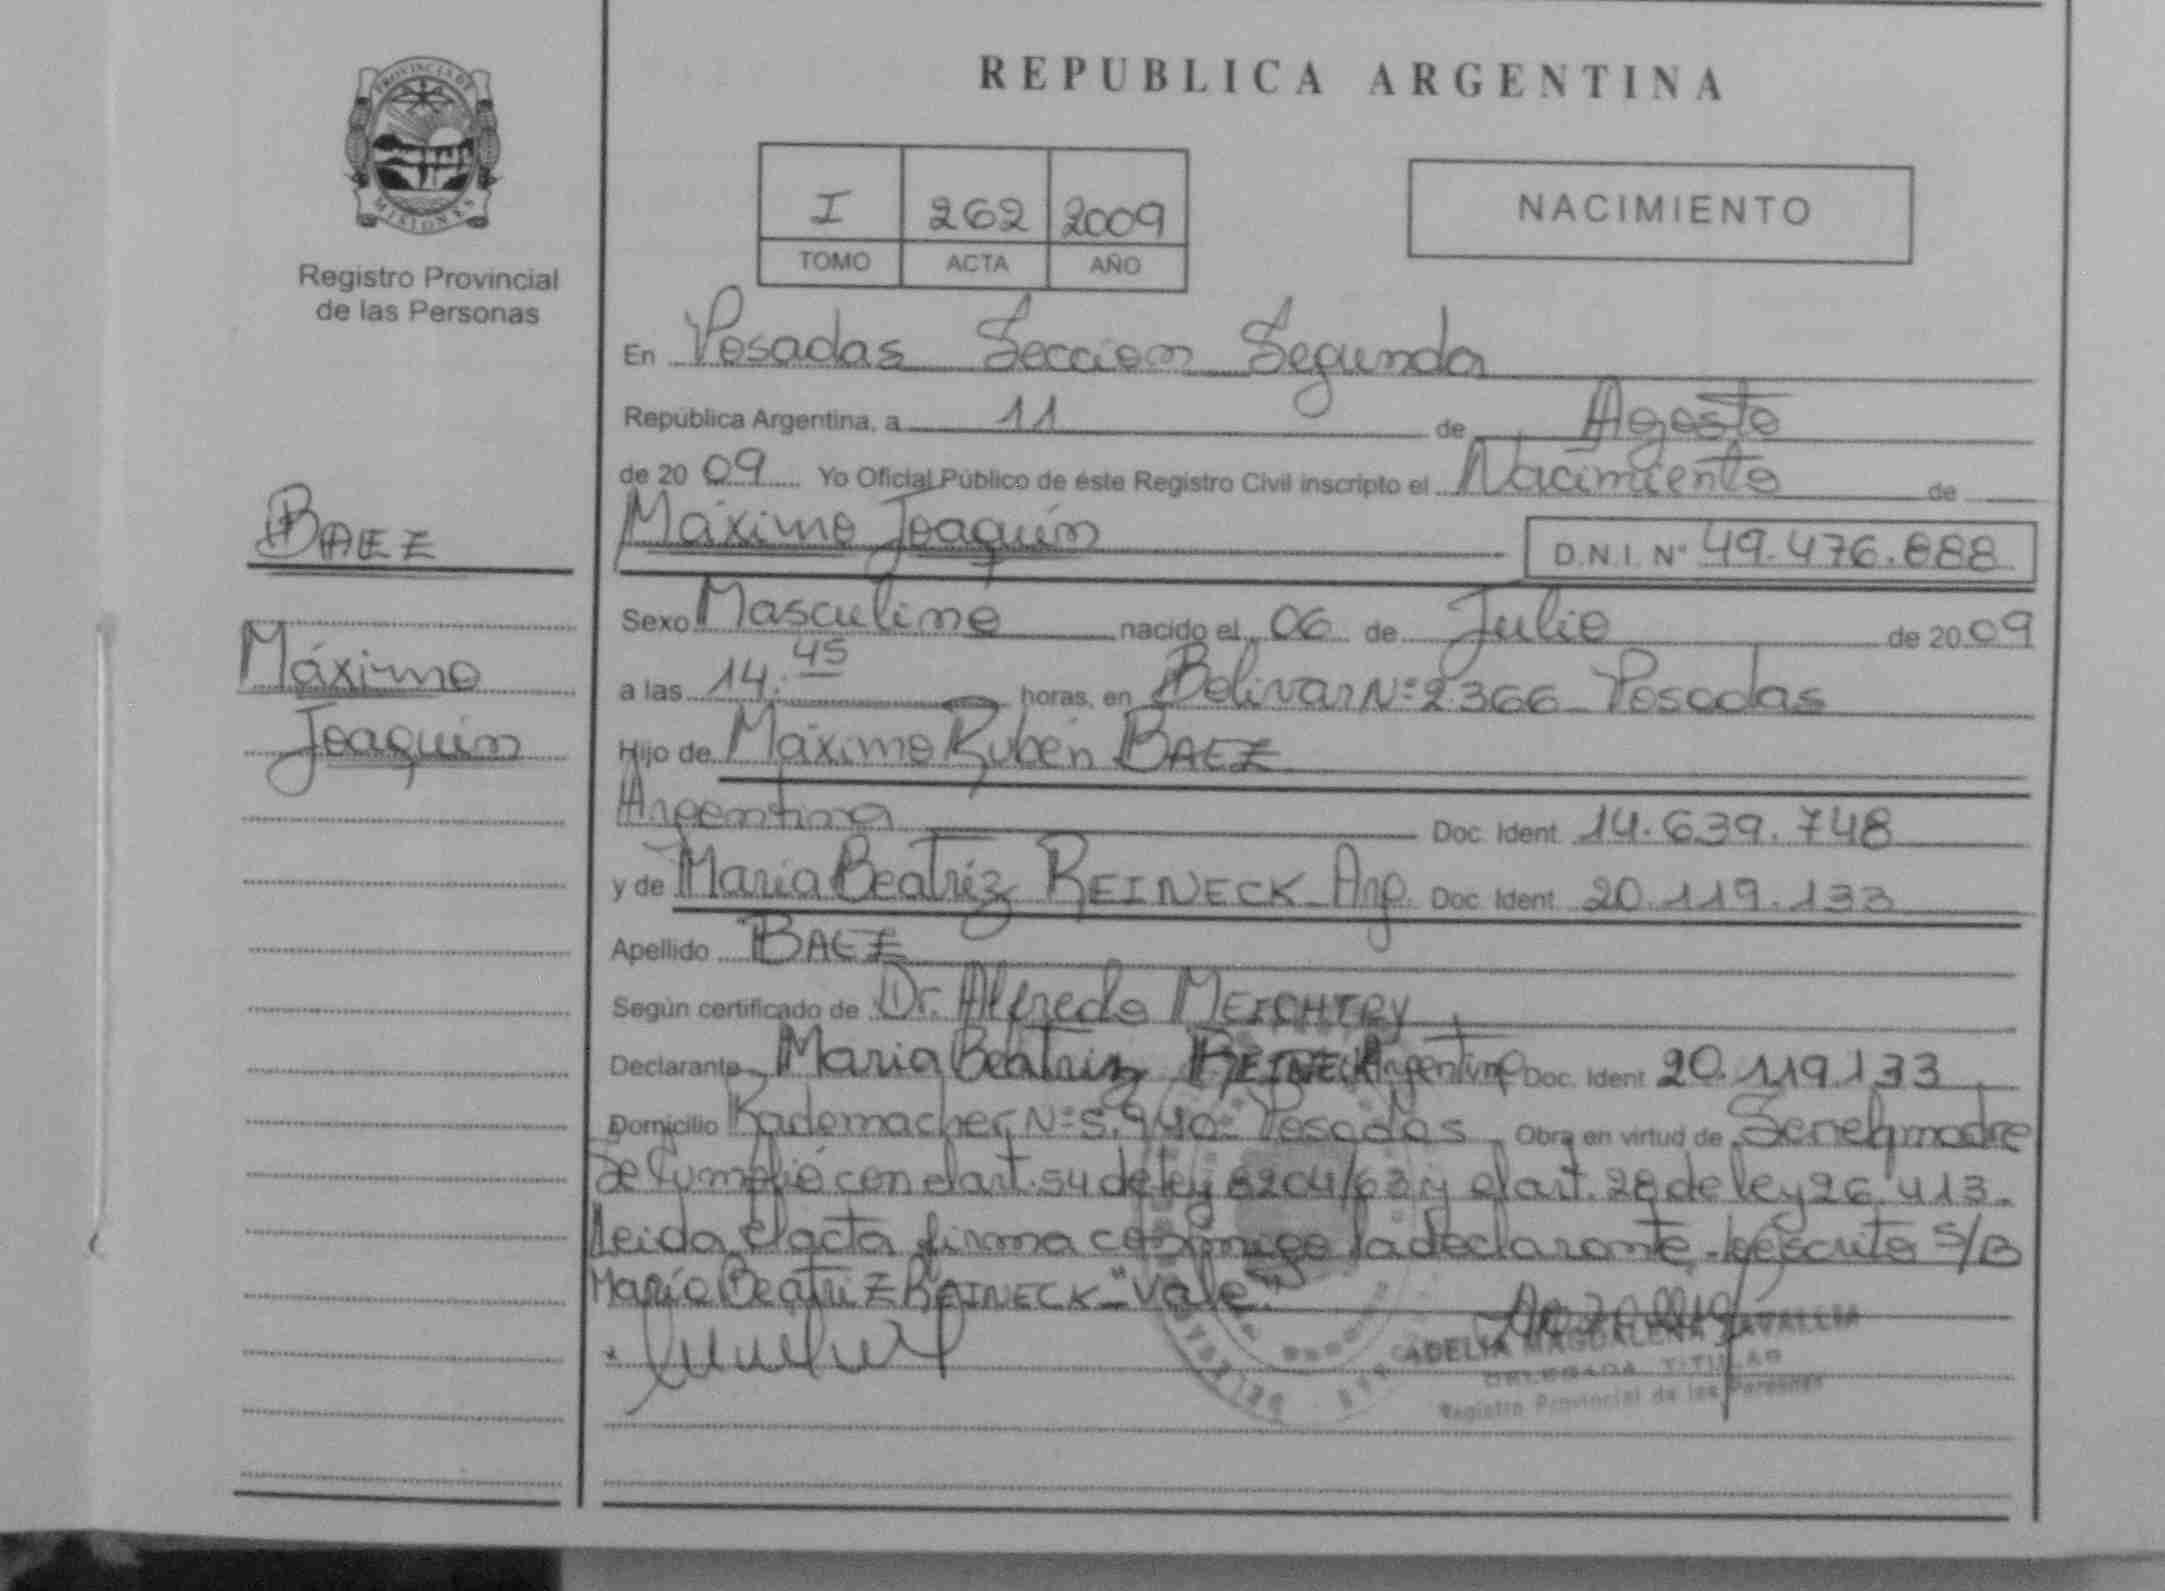 PROVINCIA DE
MISIONES
Registro Provincial
de las Personas
BAEZ
Máximo
Joaquín
REPUBLICA ARGENTINA
I 262 2009
TOMO ACTA AÑO
NACIMIENTO
En Posadas Seccion Segunda
República Argentina, a 11 de Agosto
de 20 09 Yo Oficial Público de éste Registro Civil inscripto el Nacimiento de
Máximo Joaquín D.N.I. Nº 49.476.888
Sexo Masculino nacido el 06 de Julio de 20 09
a las 14:45 horas, en Bolivar Nº 2.366 - Posadas
Hijo de Máximo Rubén BAEZ
Argentina Doc. Ident. 14.639.748
y de María Beatríz REINECK - Arg. Doc. Ident. 20.119.133
Apellido BAEZ
Según certificado de Dr. Alfredo MEICHTRY
Declarante Maria Beatriz REINECK Argentina Doc. Ident. 20.119.133
Domicilio Rademacher Nº 5.940 - Posadas Obra en virtud de Ser el madre
Se cumplió con el art. 54 de ley 8204/63 y el art. 28 de ley 26.413.
Leida el acta firma conmigo la declarante - S/B
María Beatriz REINECK - "Vale"
ADELIA MAGDALENA
DELEGADA TITULAR
Registro Provincial de las Personas